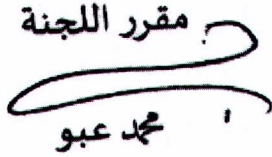 مقرر اللجنة
محمد عبو